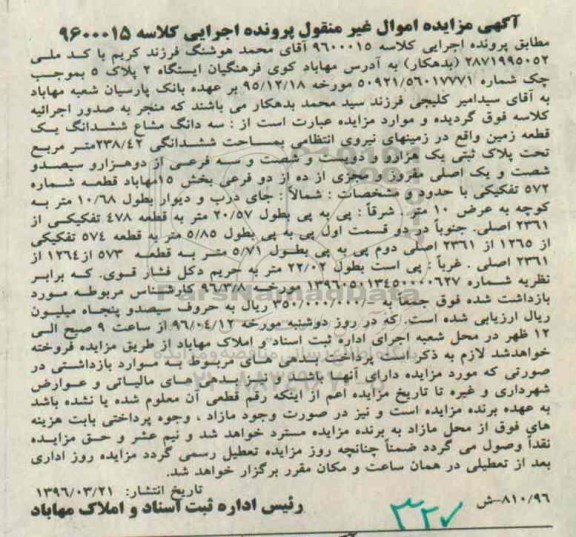 آگهی مزایده اموال غیر منقول پرونده اجرایی کلاسه ۹۶۰۰۰۱۵
مطابق پرونده اجرایی کلاسه ۹۶۰۰۰۱۵ آقای محمد هوشنگ فرزند کریم با کد ملی
۲۸۷۱۹۹۵۰۵۲ (بدهکار) به آدرس مهاباد کوی فرهنگیان ایستگاه ۲ پلاک ۵ بموجب
چک شماره ۵۰۹۲۱/۵۶۰۱۷۷۷۱ مورخه ۹۵/۱۲/۱۸ بر عهده بانک پارسیان شعبه مهاباد
به آقای سیدامیر کلیجی فرزند سید محمد بدهکار می باشند که منجر به صدور اجرائیه
کلاسه فوق گردیده و موارد مزایده عبارت است از : سه دانگ مشاع ششدانگ یک
قطعه زمین واقع در زمینهای نیروی انتظامی بمساحت ششدانگی ۲۳۸/۴۲متر مربع
تحت پلاک ثبتی یک هزارو و دویست و شصت و سه فرعی از دوهزارو سیصدو
شصت و یک اصلی مفروز و مجزی از ده از دو فرعی بخش ۱۵مهاباد قطعه شماره
۵۷۲ تفکیکی با حدود و مشخصات : شمالاً : جای درب و دیوار بطول ۱۰/۶۸ متر به
کوچه به عرض ۱۰ متر . شرقاً : پی به پی بطول ۲۰/۵۷ متر به قطعه ۴۷۸ تفکیکی از
۲۳۶۱ اصلی. جنوباً در دو قسمت اول پی به پی بطول ۵/۸۵ متر به قطعه ۵۷۴ تفکیکی
از ۱۲۶۵ از ۲۳۶۱ اصلی دوم پی به پی بطول ۵/۷۱ متر به قطعه ۵۷۳ از۱۲۶۴ از
۲۳۶۱ اصلی . غرباً : پی است بطول ۲۲/۰۲ متر به حریم دکل فشار قوی. که برابر
نظریه شماره ۱۳۹۶۰۵۰۱۳۴۵۰۰۰۰۶۲۷ مورخه ۹۶/۳/۸ کارشناس مربوطه مورد
بازداشت شده فوق جمعاً ۳۵۰/۰۰۰/۰۰۰ ریال به حروف سیصدو پنجاه میلیون
ریال ارزیابی شده است. که در روز دوشنبه مورخه ۹۶/۰۴/۱۲ از ساعت ۹ صبح الی
۱۲ ظهر در محل شعبه اجرای اداره ثبت اسناد و املاک مهاباد از طریق مزایده فروخته
خواهدشد لازم به ذکر است پرداخت بدهی های مربوط به موارد بازداشتی در
صورتی که مورد مزایده دارای آنها باشد و نیز بدهی‌های مالیاتی و عوارض
شهرداری و غیره تا تاریخ مزایده اعم از اینکه رقم قطعی آن معلوم شده یا نشده باشد
به عهده برنده مزایده است و نیز در صورت وجود مازاد ، وجوه پرداختی بابت هزینه
های فوق از محل مازاد به برنده مزایده مسترد خواهد شد و نیم عشر و حق مزایده
نقداً وصول می گردد ضمناً چنانچه روز مزایده تعطیل رسمی گردد مزایده روز اداری
بعد از تعطیلی در همان ساعت و مکان مقرر برگزار خواهد شد.
تاریخ انتشار: ۱۳۹۶/۰۳/۲۱
رئیس اداره ثبت اسناد و املاک مهاباد
۸۱۰/۹۶-ش